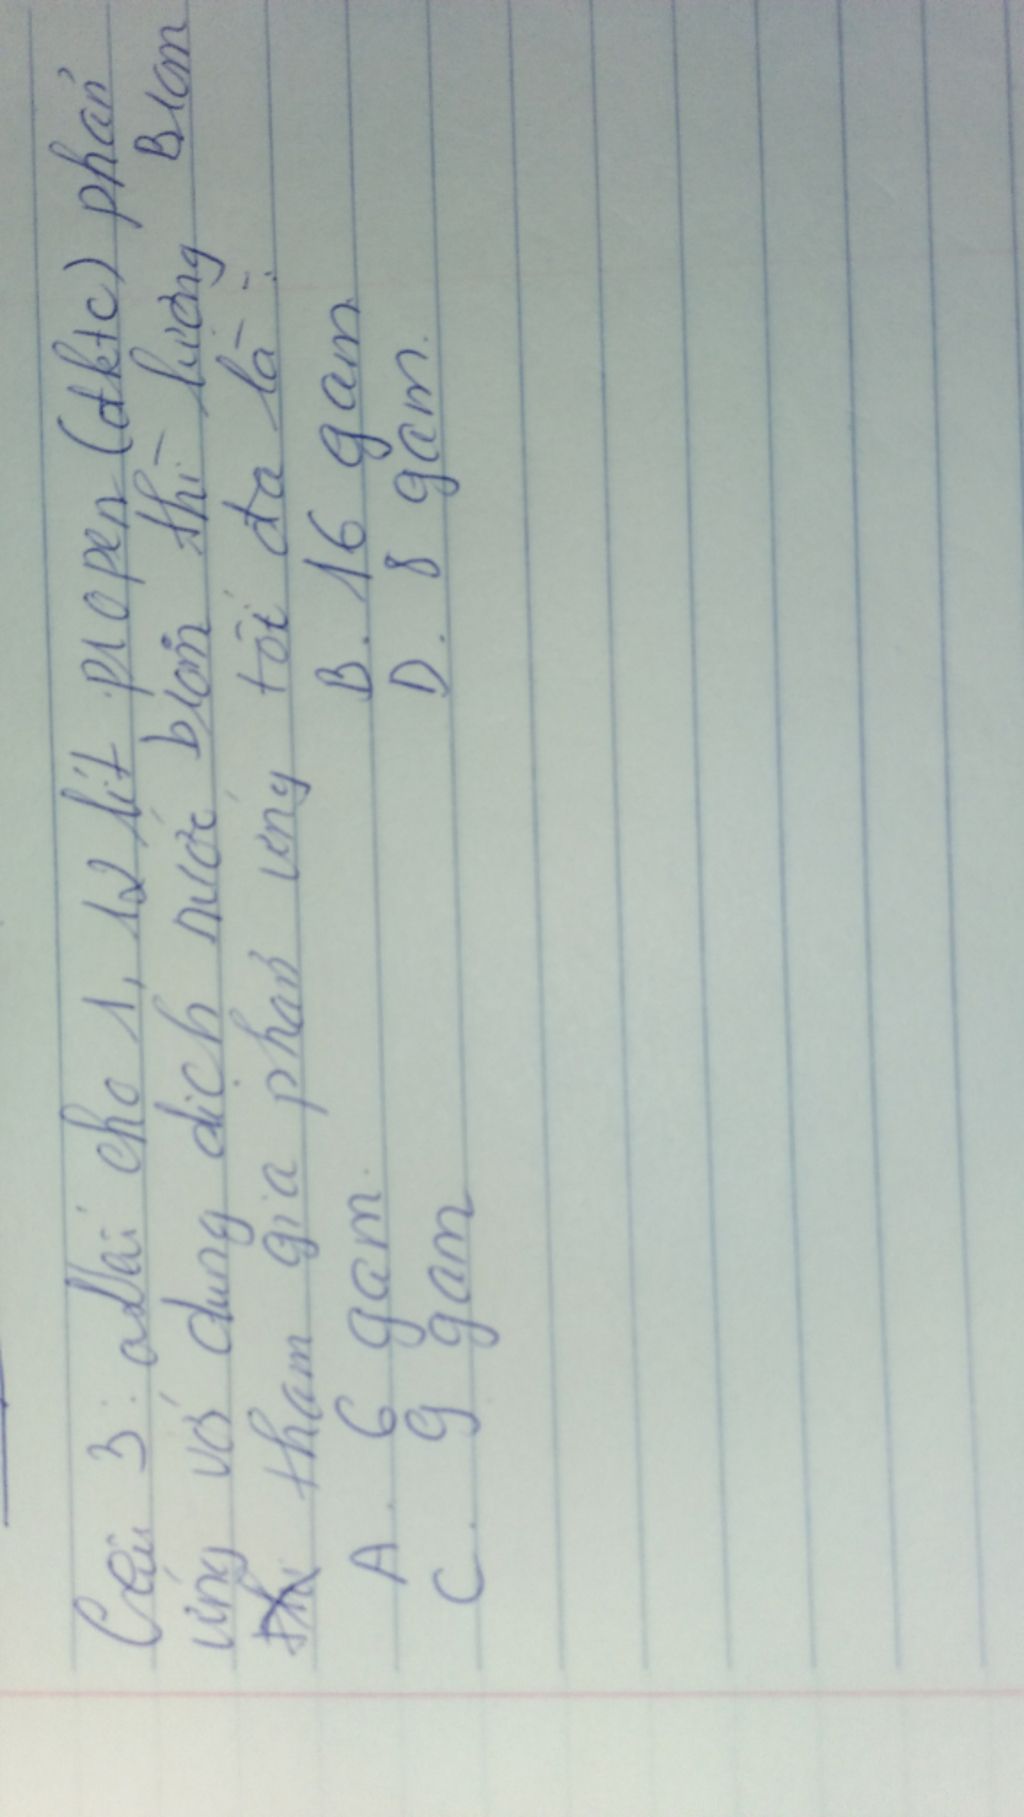 Câu 3: Nếu cho 1,12 lít propen (đktc) phản
ứng với dung dịch nước brom thì lượng Brom
tham gia phản ứng tối đa là:
A. 6 gam. B. 16 gam
C. 9 gam D. 8 gam.